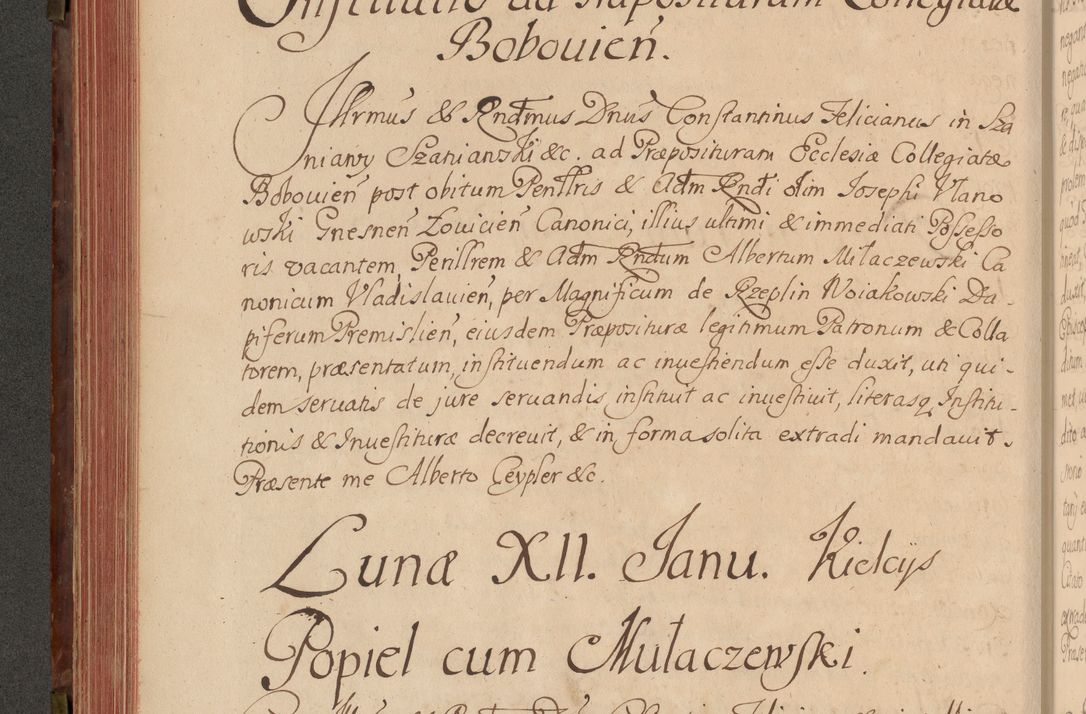 Institutio ad Præposituram Collegiatæ
Bobouień.
Illrmus & Rndmus Dnus Constantinus Felicianus in Sza
niawy Szaniawski &c. ad Præposituram Ecclesiæ Collegiatæ
Bobouień post obitum Perillris & Adm Rndi olim Josephi Vlano
wski Gnesneń Łouicień Canonici, illius ultimi & immediati Possesso
ris vacantem, Perillrem & Adm Rndum Albertum Miłaczewski Ca
nonicum Vladislauień, per Magnificum de Rzeplin Woiakowski Da-
piferum Premislień, eiusdem Præpositurę legitimum Patronum & Colla
torem, præsentatum, instituendum ac inuestiendum esse duxit, uti qui-
dem seruatis de jure seruandis instituit ac inuestiuit, literasq Institu-
tionis & Inuestituræ decreuit, & in forma solita extradi mandauit.
Præsente me Alberto Ceypler &c.
Lunæ XII. Janu. Kielcijs
Popiel cum Mułaczewski.